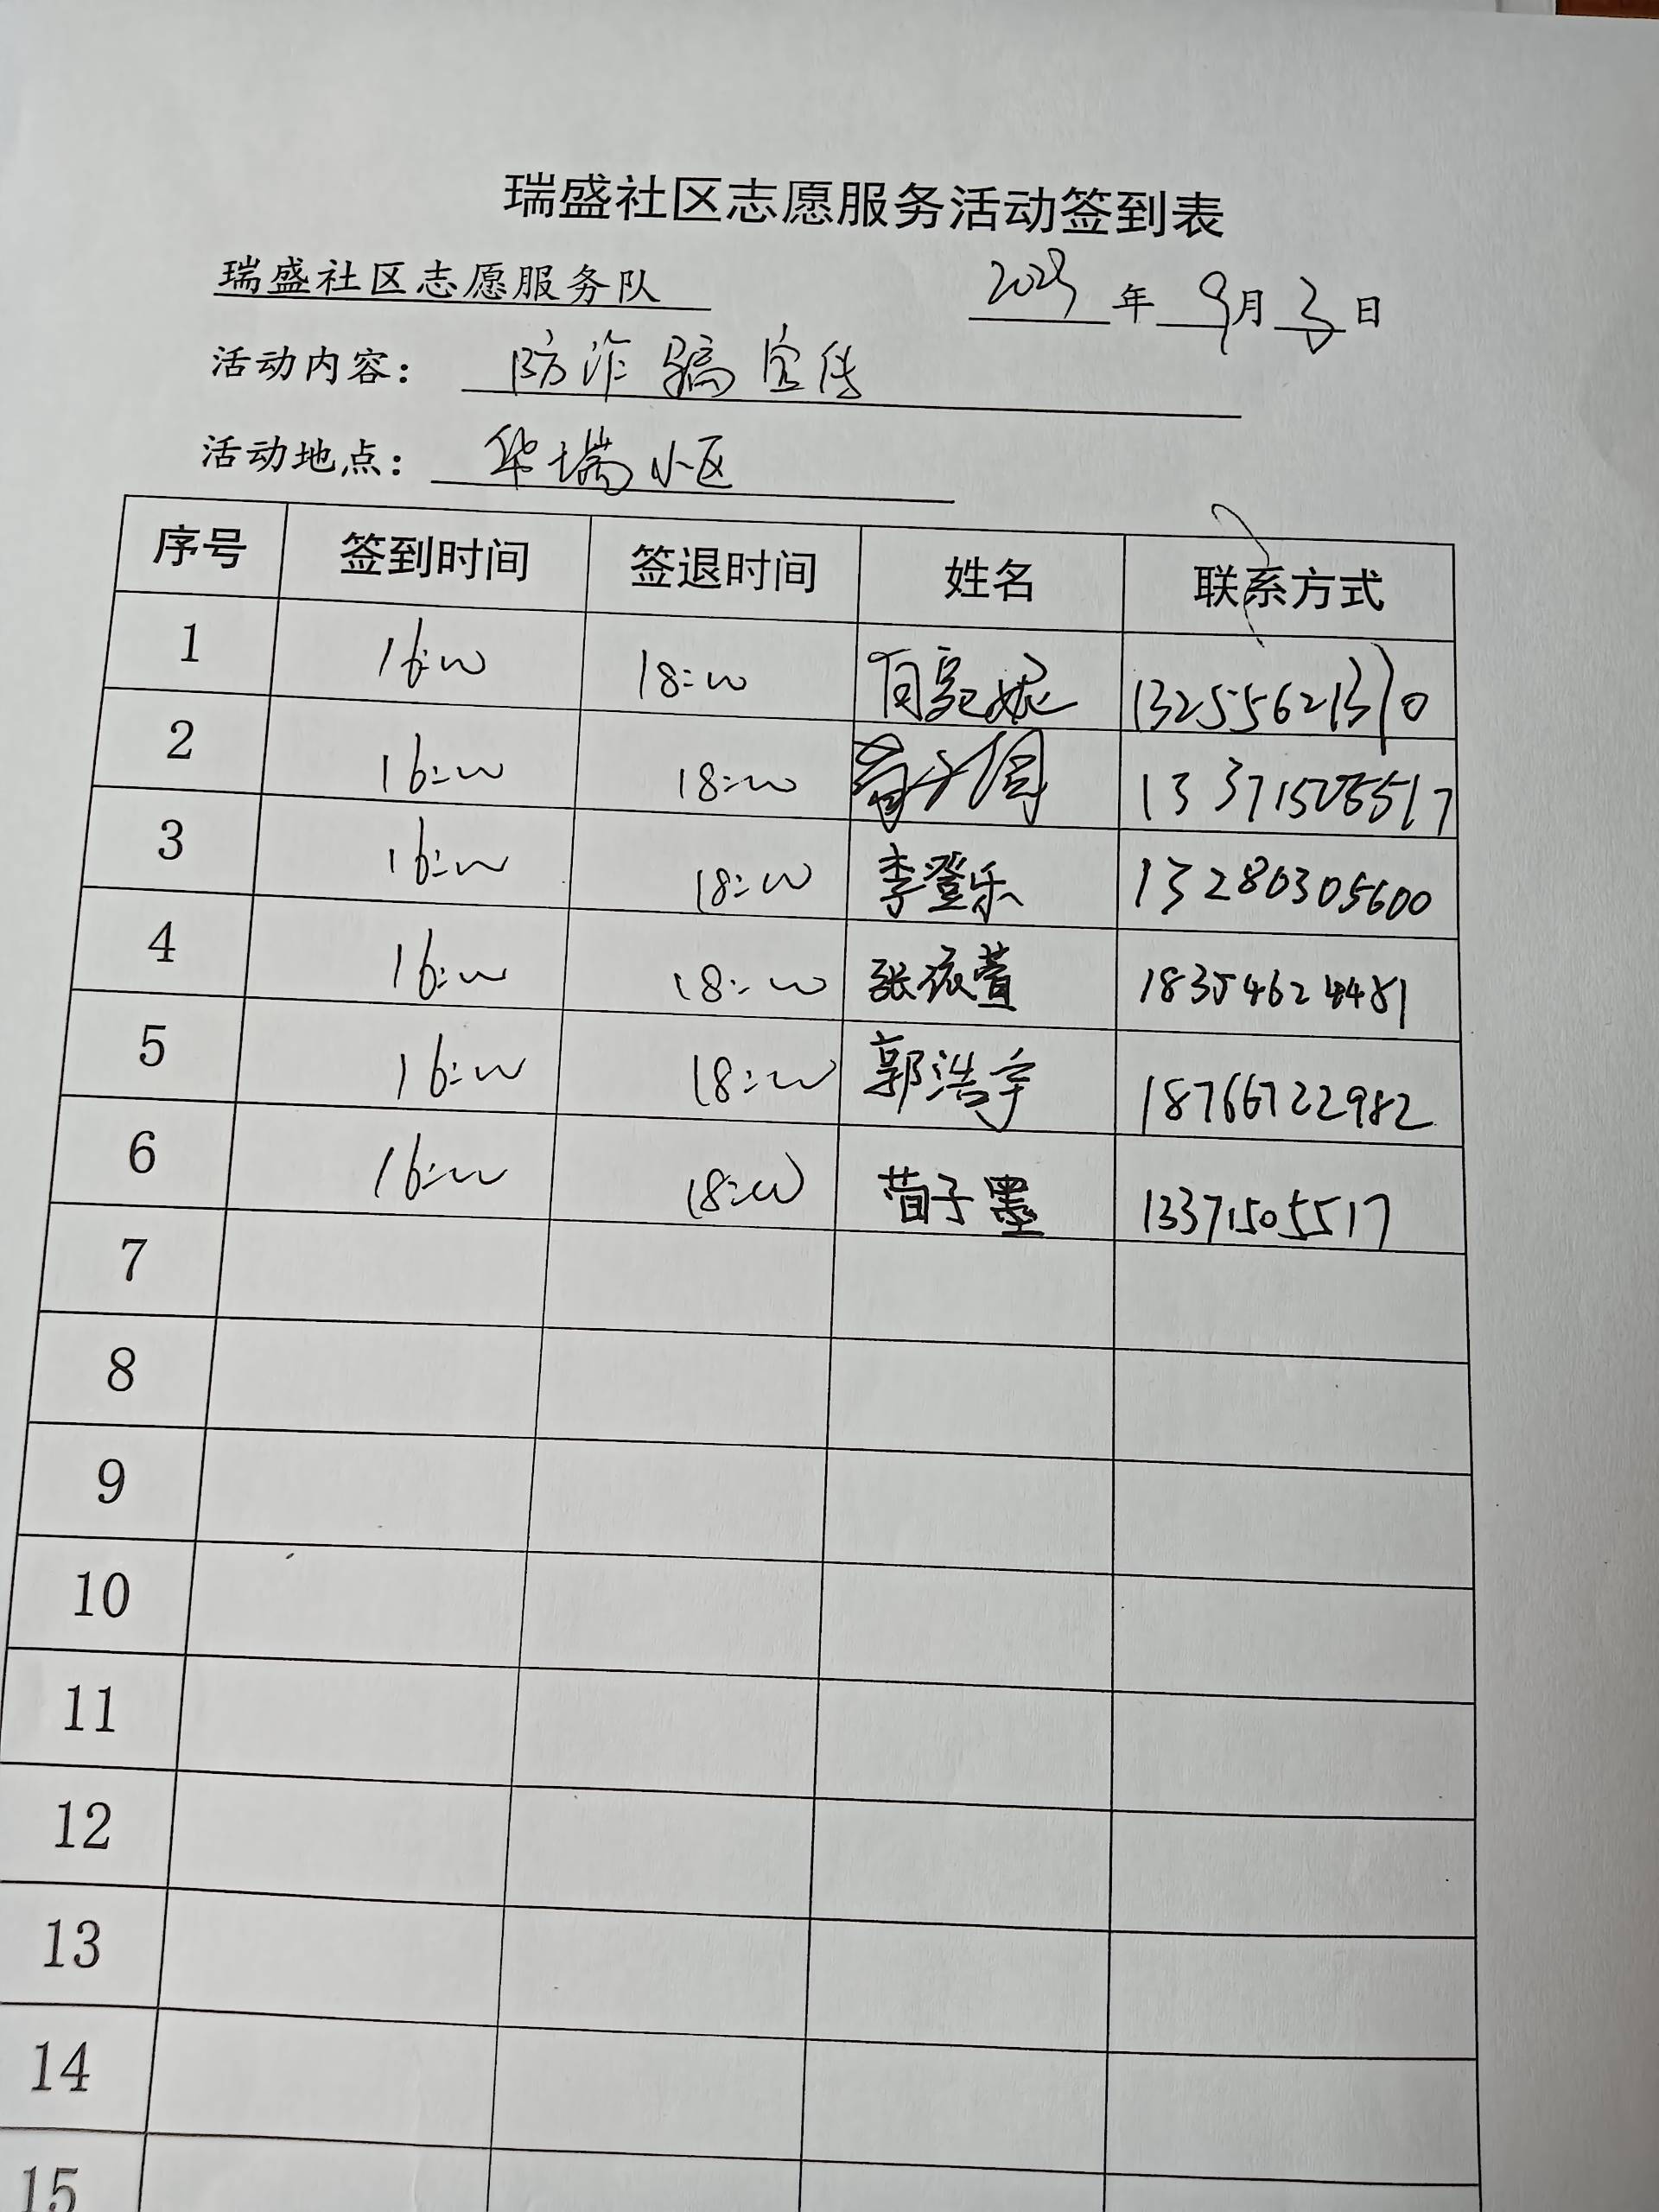 瑞盛社区志愿服务活动签到表
瑞盛社区志愿服务队 年 9月 3日
活动内容： 防诈骗宣传
活动地点： 华瑞小区
序号 签到时间 签退时间 姓名 联系方式
1 16:00 18:00
2 16:00 18:00
3 16:00 18:00 李登乐 13280305600
4 16:00 18:00 张依萱 18354624481
5 16:00 18:00 郭浩宇 18766722982
6 16:00 18:00 荀子墨 13371505517
7
8
9
10
11
12
13
14
15